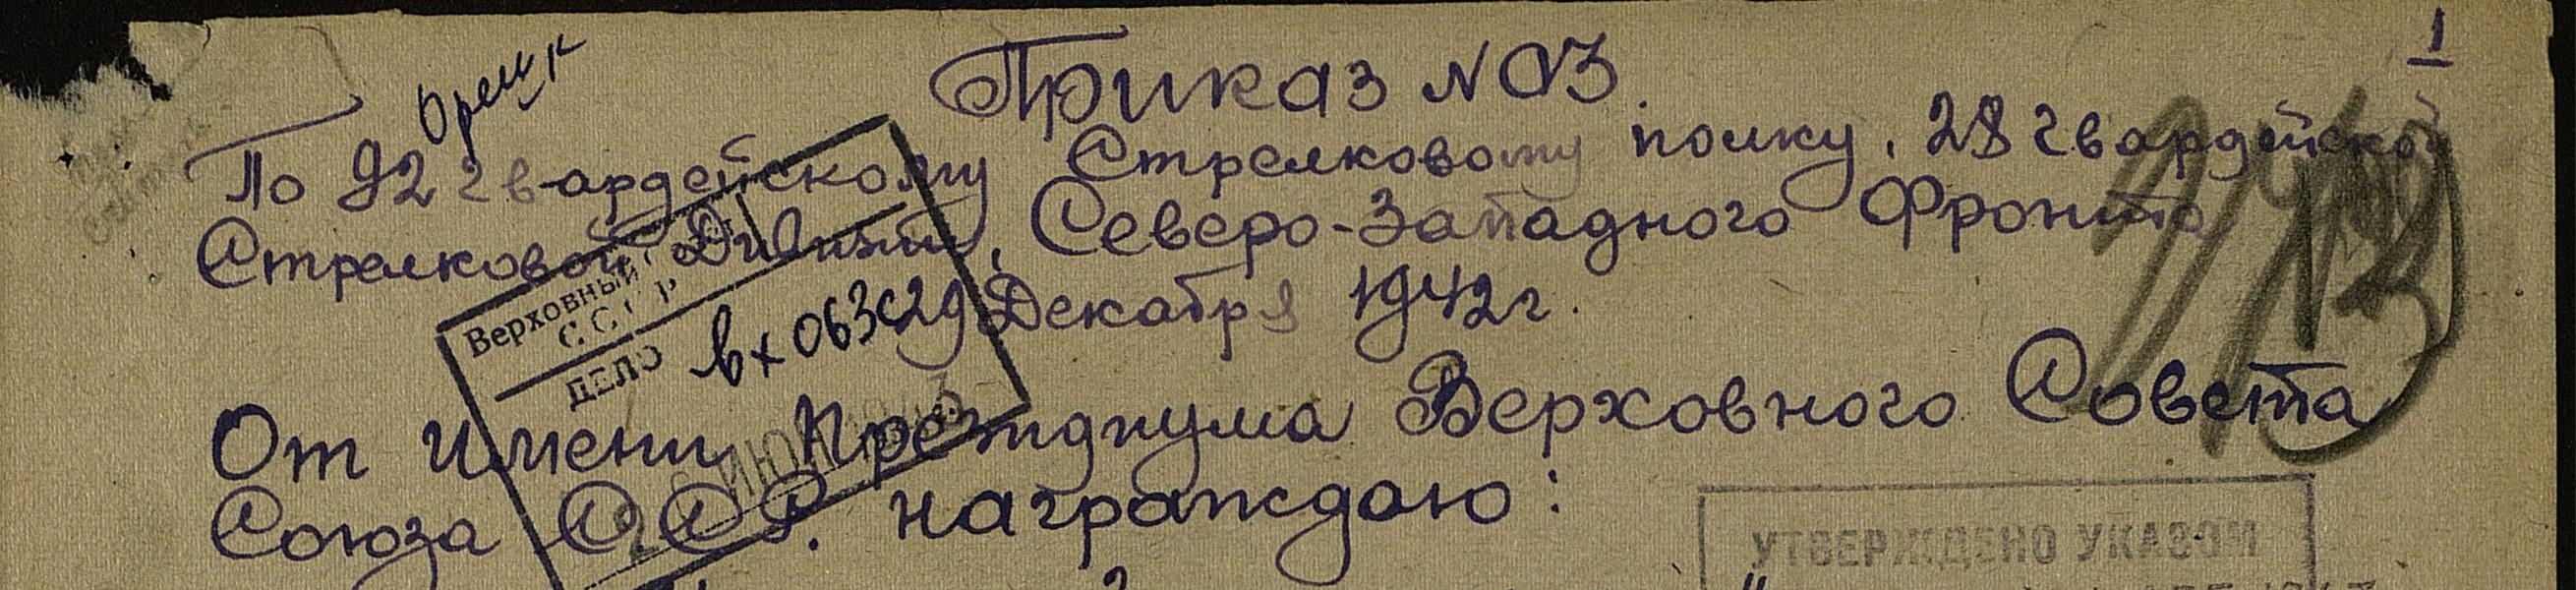 1
Приказ № 03.
По 92 гвардейскому Стрелковому полку, 28 гвардейской
Стрелковой Дивизии, Северо-Западного Фронта
29 Декабря 1942 г.
Верховный
СССР
ДЕЛО
вх 063с
От имени Президиума Верховного Совета
Союза С.С.Р. награждаю:
УТВЕРЖДЕНО УКАЗОМ